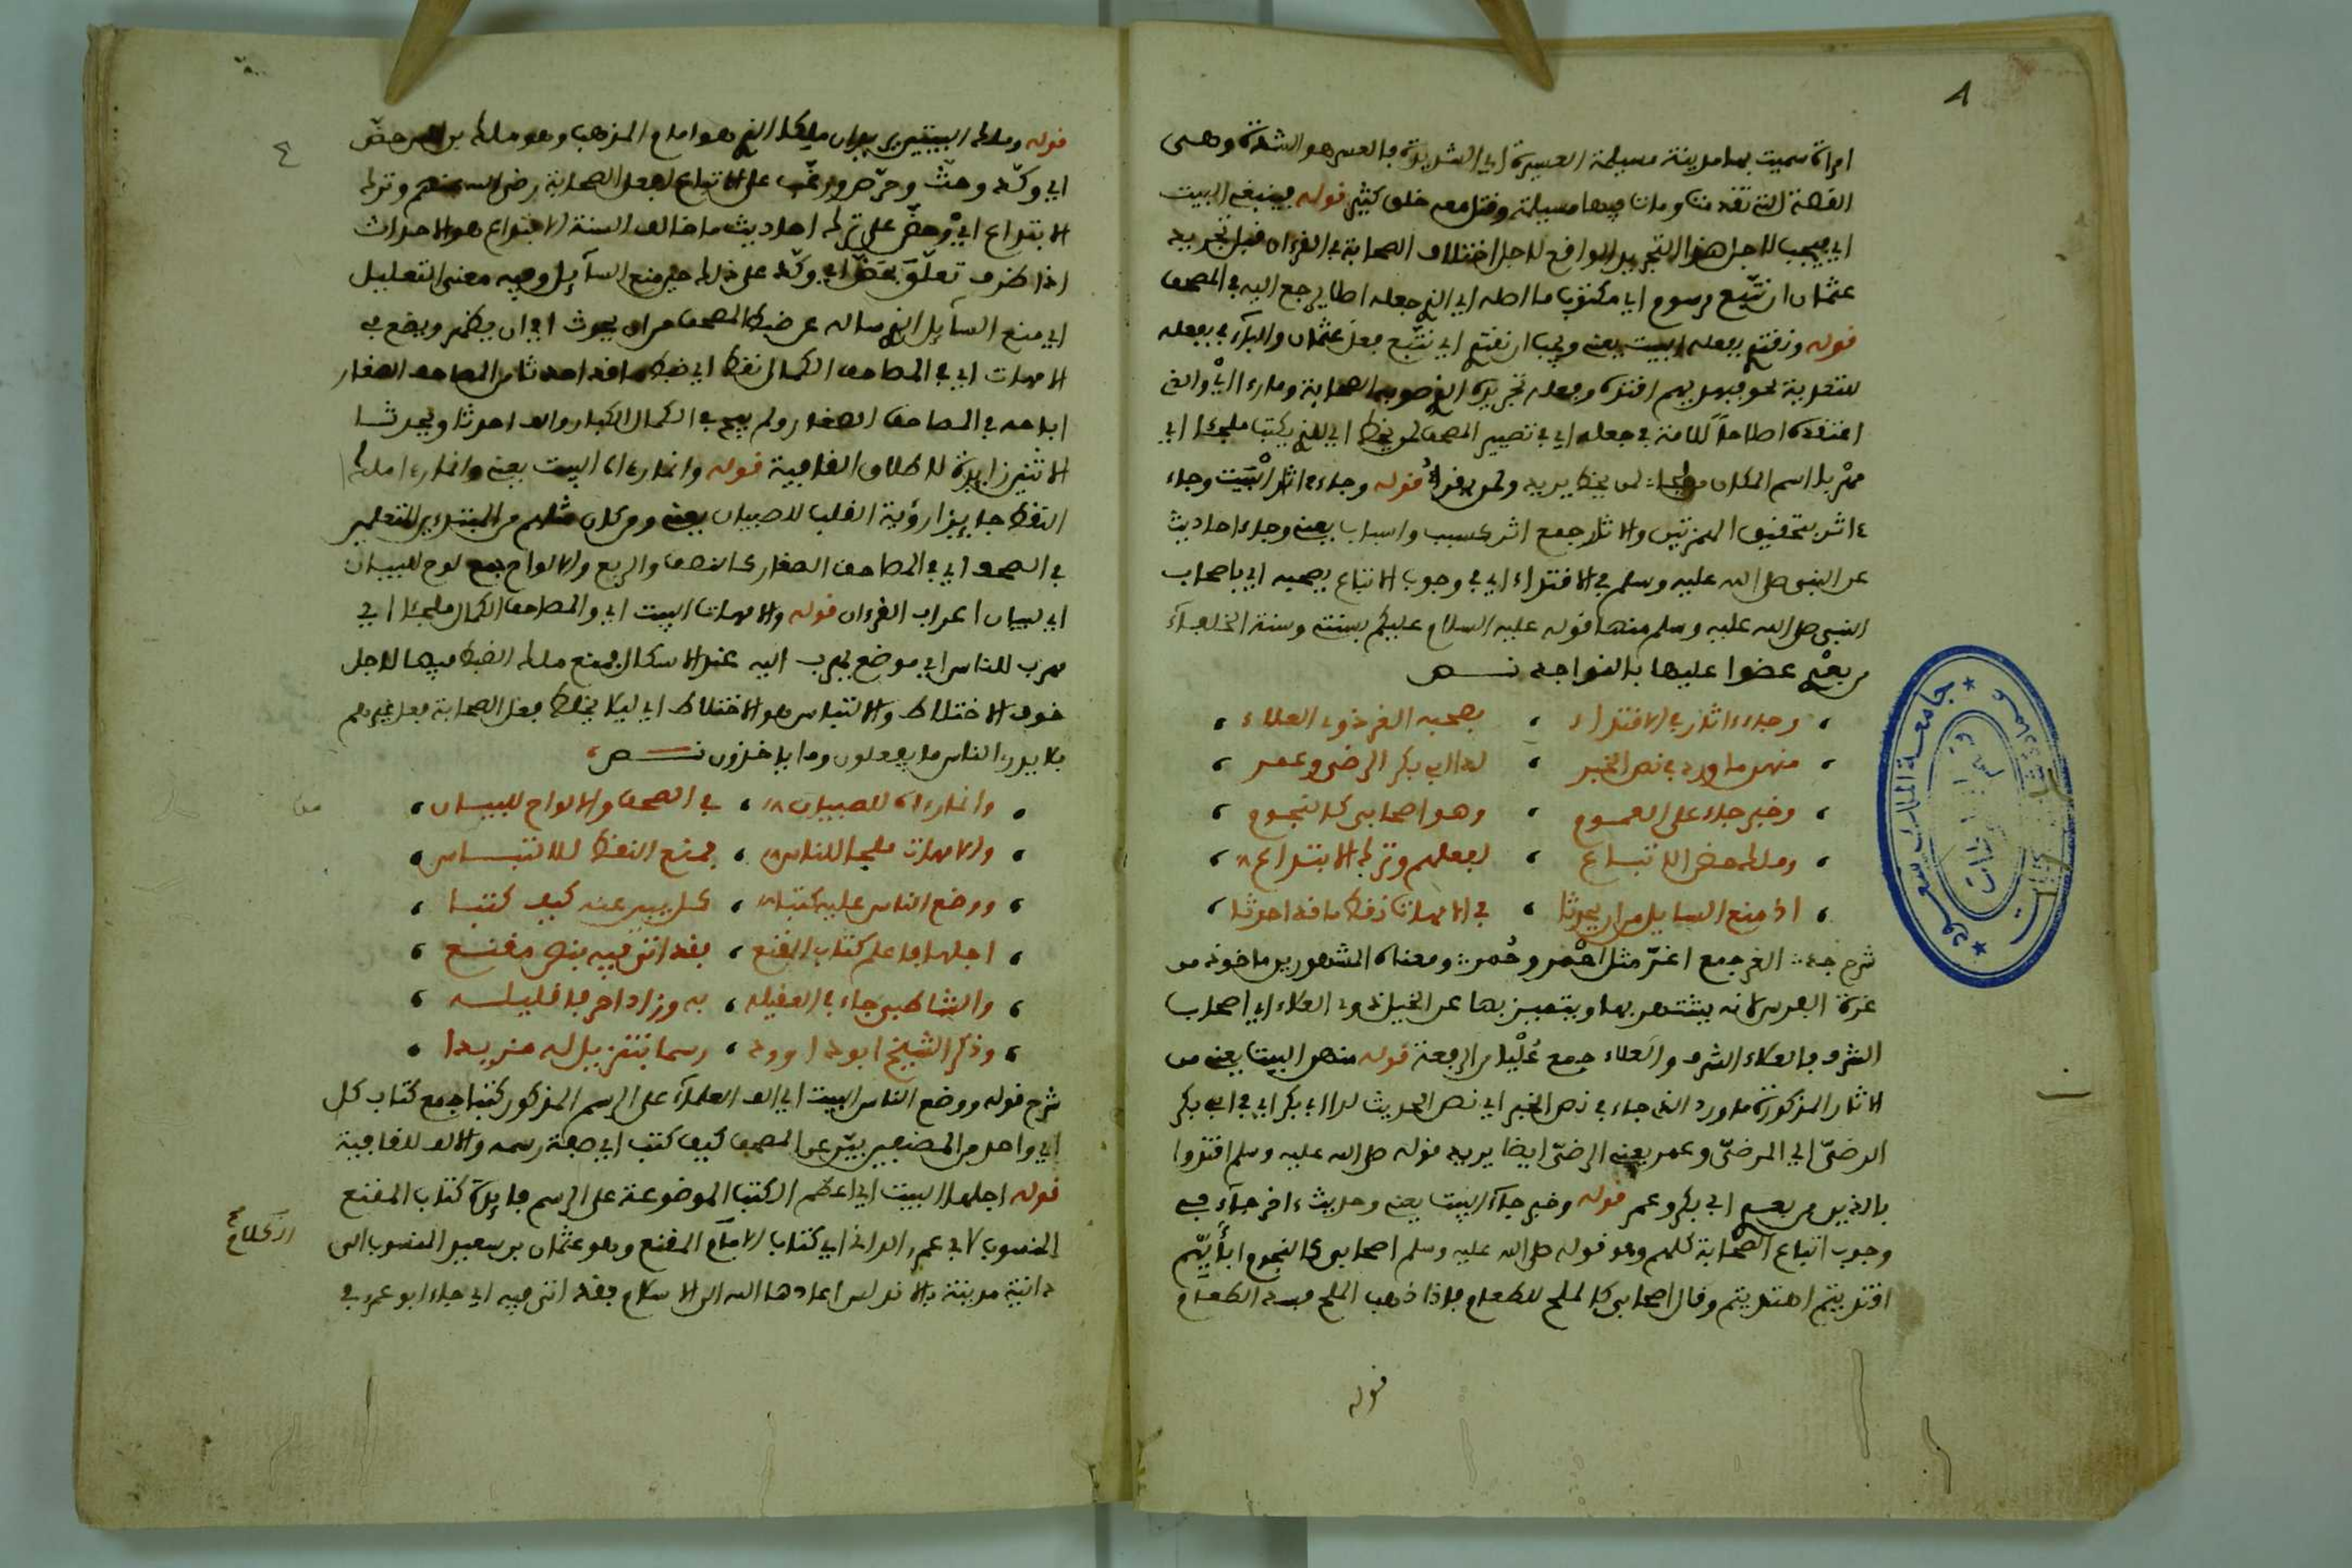 امراة سميت بها مدينة مسيلمة العسيرة اي الشديدة بالعسر هو الشدة وهي
القصة التي تقدمت ومات فيها مسيلمة وقتل معه خلق كثير قوله فينبغي البيت
اي فيجب لاجل هذا التجريد الواقع لاجل اختلاف الصحابة في القرءان قبل تجريد
عثمان ان نتبع مرسوم اي مكتوب ما اصله اي الذي جعله اصلا يرجع اليه في المصحف
قوله ونقتدي بفعله البيت يعني ويجب ان نقتدي اي نتبع فعل عثمان والباء في بفعله
للتعدية نحو فبهديهم اقتده وفعله تجريده الذي صوبه الصحابة وما رءا اي والذي
اعتقده اصلا للامة في جعله اي في تصيير المصحف لمن يخط اي للذي يكتب ملجئا اي
مهربا اسم المكان ملجا لمن يخط يريد ولمن يقرا قوله وجاء ءاثار البيت وجاء
ءاثر بتحقيق الهمزتين والاثار جمع اثر كسبب واسباب يعني وجاء احاديث
عن النبي صلى الله عليه وسلم في الاقتداء اي في وجوب الاتباع بصحبه اي باصحاب
النبي صلى الله عليه وسلم منها قوله عليه السلام عليكم بسنتي وسنة الخلفاء
من بعدي عضوا عليها بالنواجد نص
وجاء ءاثار في الاقتداء بصحبه الغر ذوي العلاء
منهن ما ورد في نص الخبر لدا ابي بكر الرضى وعمر
وخبر جاء على العموم وهو اصحابي كالنجوم
ومالك حض الاتباع لفعلهم وترك الابتداع
اذ منع السايل من ان يحدثا في الامهات نقط ما قد احدثا
شرح الغر جمع اغر مثل احمر وحمر ومعناه المشهورين ماخوذ من
غرة الفرس لانه يشتهر بها ويتميز بها عن الخيل ذوي العلاء اي اصحاب
الشرف بالعلاء الشرف والعلاء جمع عليا من الرفعة قوله منهن البيت يعني من
الاثار المذكورة ما ورد الذي جاء في نص الخبر اي نص الحديث لدا ابي بكر اي في ابي بكر
الرضى اي المرضي وعمر يعني الرضى ايضا يريد قوله صلى الله عليه وسلم اقتدوا
بالذين من بعدي ابي بكر وعمر قوله وخبر جاء البيت يعني وحديث ءاخر جاء في
وجوب اتباع الصحابة كلهم وهو قوله صلى الله عليه وسلم اصحابي كالنجوم بايهم
اقتديتم اهتديتم وقال اصحابي كالملح للطعام فاذا ذهب الملح فسد الطعام
قوله
٤
قوله ومالك البيتين يريد ان مالكا الذي هو امام المذهب وهو مالك بن انس حض
اي وكد وحث وحرض ورغب على الاتباع لفعل الصحابة رضي الله عنهم وترك
الابتداع اي وحض على ترك احاديث ما خالف السنة الابتداع هو الاحداث
اذ اظرف تعلق بحض اي وكد على ذلك حين منع السايل وفيه معنى التعليل
اي منع السايل الذي ساله عن ضبط المصحف من ان يحدث اي ان يظهر ويضع في
الامهات اي في المصاحف الكمال نقط اي ضبط ما قد احدثا من المصاحف الصغار
اباحه في المصاحف الصغار ولم يبح في الكمال الكبار والف احدثا ويحدثا
الاثنين زايدة لاطلاق القافية قوله وانما رءاه البيت يعني وانما رءا مالك
النقط جايزا رؤية القلب للصبيان يعني ومن كان مثلهم من المبتدئين للتعليم
في الصحف اي في المصاحف الصغار كالنصف والربع والالواح جمع لوح للبيان
اي لبيان اعراب القرءان قوله والامهات البيت اي والمصاحف الكمال ملجئا اي
مهرب للناس اي موضع يهرب اليه عند الاشكال فمنع مالك الضبط فيها لاجل
خوف الاختلاط والالتباس هو الاختلاط اي ليلا يختلط فعل الصحابة بفعل غيرهم
فلا يدري الناس ما يفعلون وما ياخذون نص
وانما رءاه للصبيان في الصحف والالواح للبيان
والامهات ملجا للناس فمنع النقط للالتباس
ووضع الناس عليه كتبا كل يبين عنه كيف كتبا
اجلها فاعلم كتاب المقنع فقد اتى فيه بنص مقنع
والشاطبي جاء في العقيلة به وزاد احرفا قليلة
وذكر الشيخ ابو داوود رسما بتنزيل له مزيدا
شرح قوله ووضع الناس البيت اي الف العلماء على الرسم المذكور كتبا جمع كتاب كل
اي واحد من المصنفين يبين عن المصحف كيف كتب اي صفة رسمه والالف للقافية
قوله اجلها البيت اي اعظم الكتب الموضوعة على الرسم فايدة كتاب المقنع
المنسوب لابي عمرو الداني اي كتاب الامام المقنع وهو عثمان بن سعيد المنسوب الى
دانية مدينة بالاندلس اعادها الله الى الاسلام فقد اتى فيه اي جاء ابو عمرو في
جامعة الملك سعود